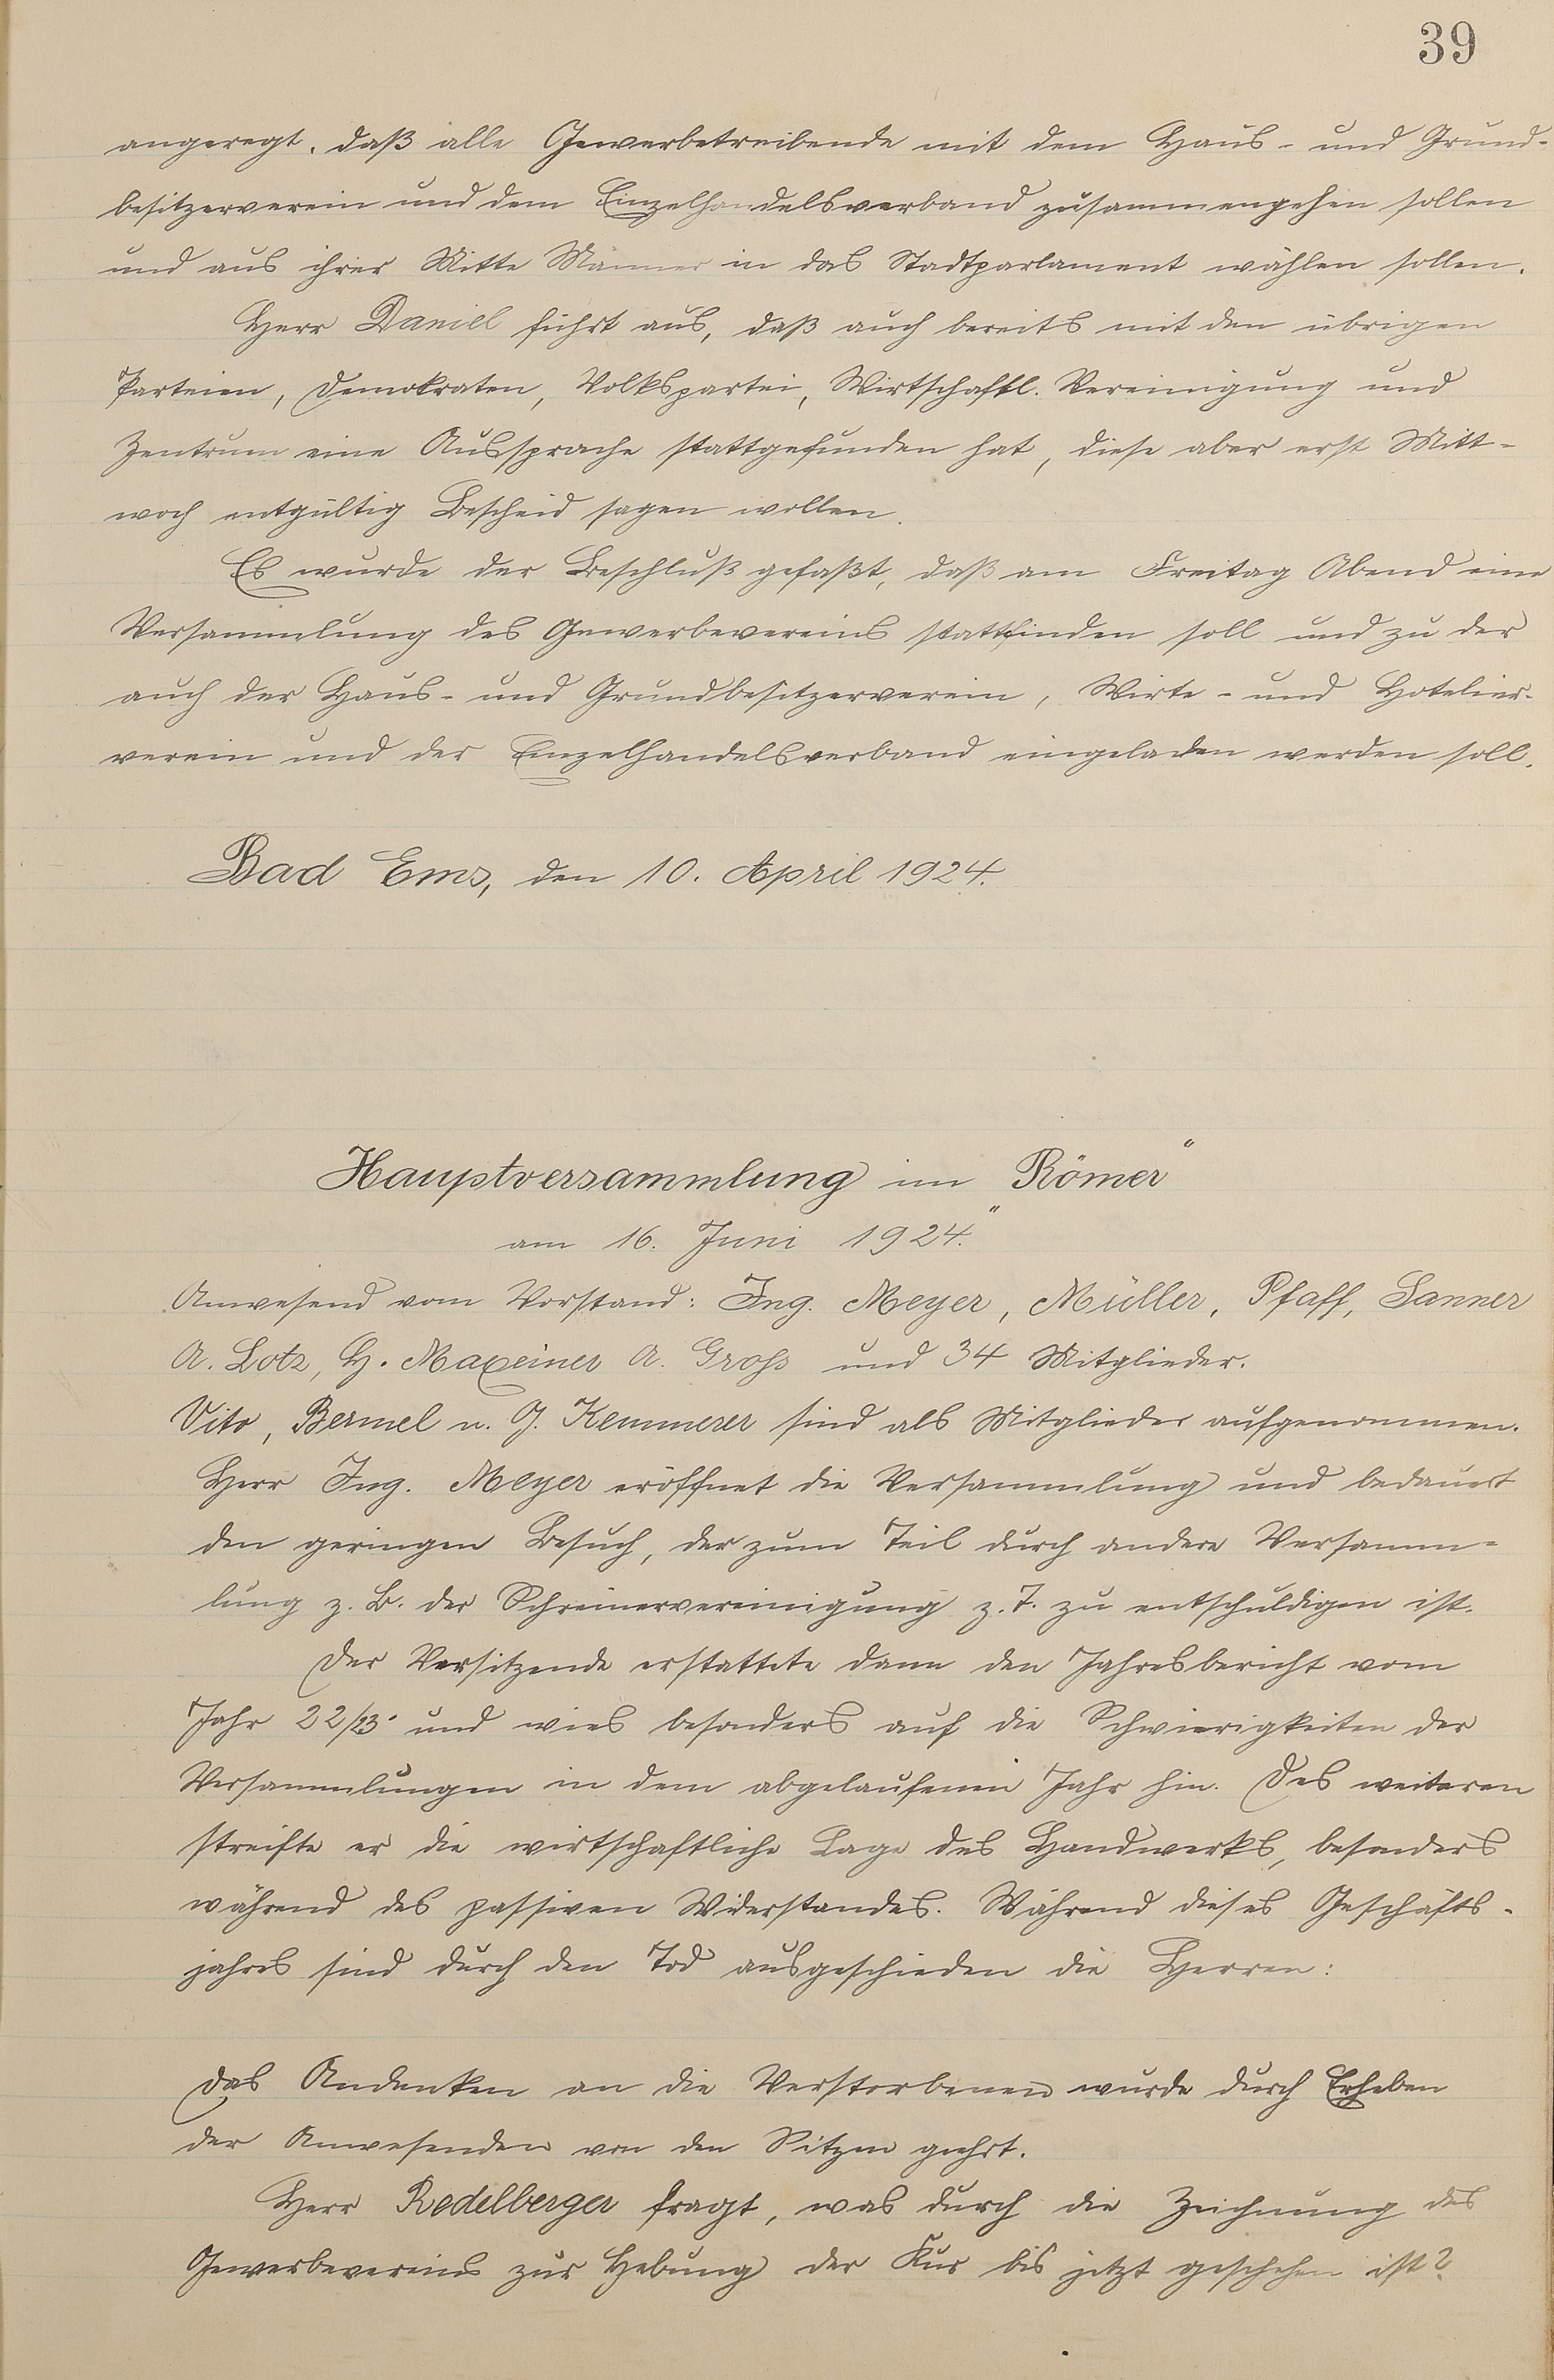 39
angeregt, daß alle Gewerbetreibende mit dem Haus- und Grund-
besitzerverein und dem Einzelhandelsverband zusammengehen sollen
und aus ihrer Mitte Männer in das Stadtparlament wählen sollen.
Herr Daniel führt aus, daß auch bereits mit den übrigen
Parteien, Demokraten, Volkspartei, Wirtschaftl. Vereinigung und
Zentrum eine Aussprache stattgefunden hat, diese aber erst Mitt-
woch entgültig Bescheid sagen wollen.
Es wurde der Beschluß gefaßt, daß am Freitag Abend eine
Versammlung des Gewerbevereins stattfinden soll und zu der
auch der Haus- und Grundbesitzerverein, Wirte- und Hotelier-
verein und der Einzelhandelsverband eingeladen werden soll.
Bad Ems, den 10. April 1924.
Hauptversammlung im "Römer"
am 16. Juni 1924.
Anwesend vom Vorstand: Ing. Meyer, Müller, Pfaff, Sanner
A. Lotz, H. Maxeiner A. Gross und 34 Mitglieder.
Vito, Bermel u. J. Kemmerer sind als Mitglieder aufgenommen.
Herr Ing. Meyer eröffnet die Versammlung und bedauert
den geringen Besuch, der zum Teil durch andere Versamm-
lung z. B. der Schreinervereinigung z. T. zu entschuldigen ist.
Der Vorsitzende erstattete dann den Jahresbericht vom
Jahr 22/23 und wies besonders auf die Schwierigkeiten der
Versammlungen in dem abgelaufenen Jahr hin. Des weiteren
streifte er die wirtschaftliche Lage des Handwerks, besonders
während des passiven Widerstandes. Während dieses Geschäfts-
jahres sind durch den Tod ausgeschieden die Herren:
Das Andenken an die Verstorbenen wurde durch Erheben
der Anwesenden von den Sitzen geehrt.
Herr Redelberger fragt, was durch die Zeichnung des
Gewerbevereins zur Hebung der Kur bis jetzt geschehen ist?